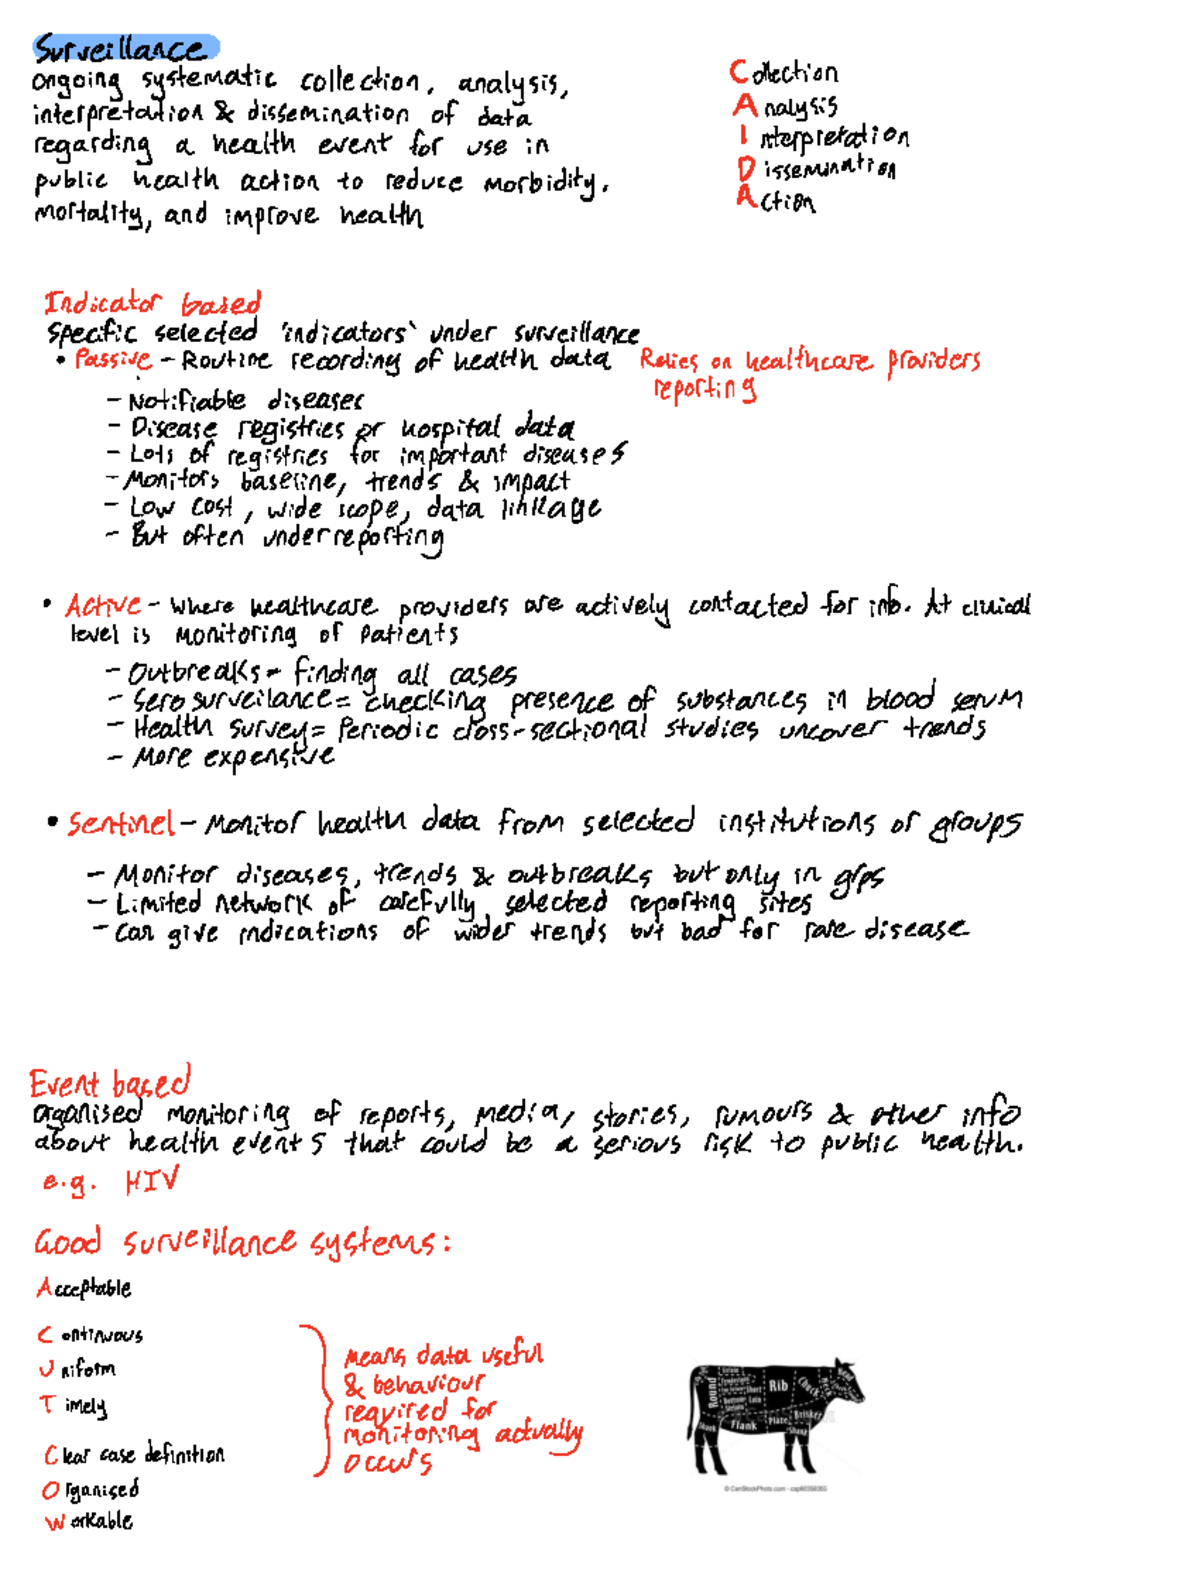 Surveillance
ongoing systematic collection, analysis,
interpretation & dissemination of data
regarding a health event for use in
public health action to reduce morbidity,
mortality, and improve health
Collection
Analysis
Interpretation
Dissemination
Action
Indicator based
Specific selected 'indicators' under surveillance
• Passive - Routine recording of health data Relies on healthcare providers
reporting
- Notifiable diseases
- Disease registries or hospital data
- Lots of registries for important diseases
- Monitors baseline, trends & impact
- Low cost, wide scope, data linkage
- But often underreporting
• Active - where healthcare providers are actively contacted for info. At clinical
level is monitoring of patients
- Outbreaks = finding all cases
- Serosurveilance = checking presence of substances in blood serum
- Health survey = Periodic cross-sectional studies uncover trends
- More expensive
• Sentinel - Monitor health data from selected institutions or groups
- Monitor diseases, trends & outbreaks but only in grps
- Limited network of carefully selected reporting sites
- Can give indications of wider trends but bad for rare disease
Event based
organised monitoring of reports, media, stories, rumours & other info
about health events that could be a serious risk to public health.
e.g. HIV
Good surveillance systems:
Acceptable
Continuous
Uniform
Timely
Clear case definition
Organised
Workable
means data useful
& behaviour
required for
monitoring actually
occurs
Round
Rib
Chuck
Flank
Plate
Brisket
Shank
Shank
© CanStockPhoto.com